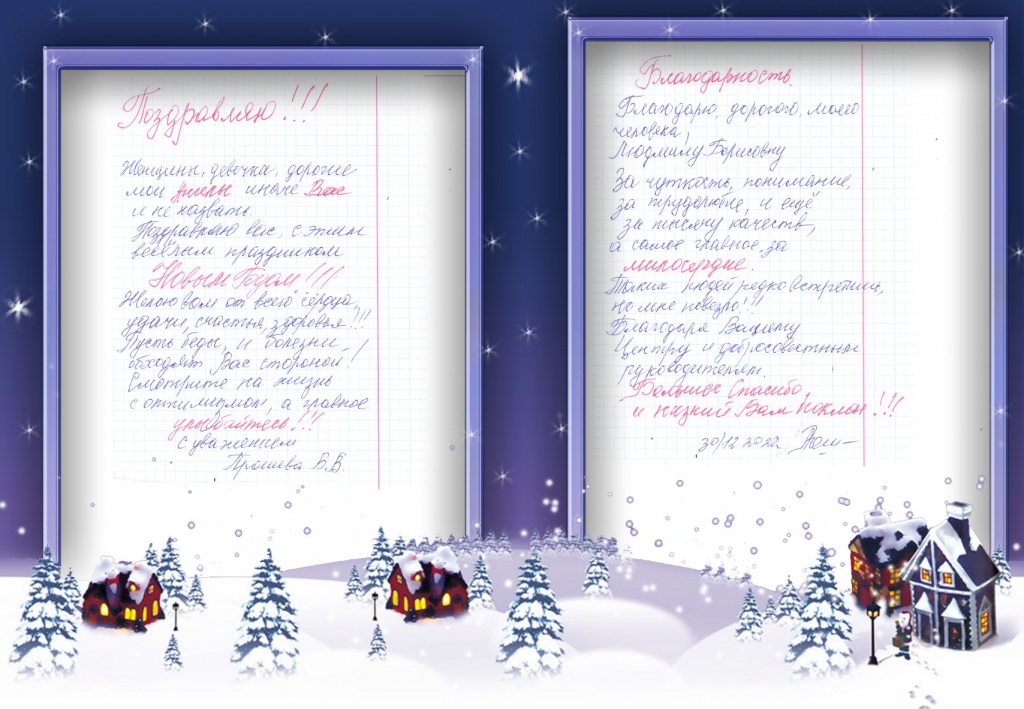 Поздравляю!!!
Женщины, девочки, дорогие
мои Ангелы иначе Вас
и не назвать.
Поздравляю вас, с этим
весёлым праздником
Новым Годом!!!
Желаю вам от всего сердца,
удачи, счастья, здоровья!!!
Пусть беды, и болезни,
обходят Вас стороной!
Смотрите на жизнь
с оптимизмом, а главное
улыбайтесь!!!
с уважением
Б.В.
Благодарность.
Благодарю, дорогого, моего
человека,
Людмилу Борисовну
За чуткость, понимание,
за трудолюбие, и ещё
за тысячу качеств,
а самое главное за
милосердие.
Таких людей редко встретишь,
но мне повезло!!!
Благодаря Вашему
Центру и добросовестным
руководителям.
Большое Спасибо,
и низкий Вам поклон!!!
30/12 2022